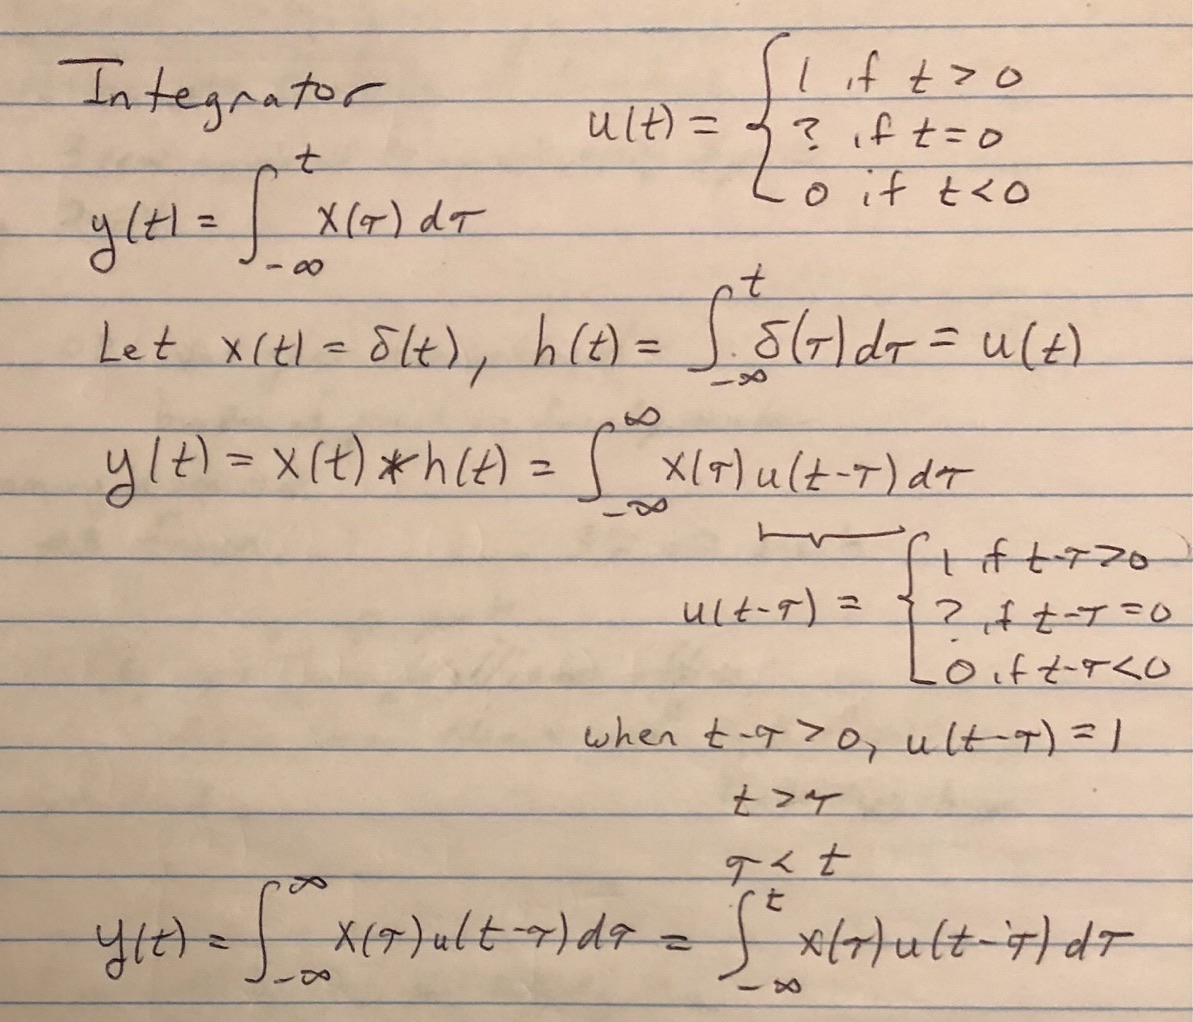 Integrator
u(t) = { 1 if t > 0
? if t = 0
0 if t < 0
y(t) = ∫_{-∞}^{t} x(τ) dτ
Let x(t) = δ(t), h(t) = ∫_{-∞}^{t} δ(τ) dτ = u(t)
y(t) = x(t) * h(t) = ∫_{-∞}^{∞} x(τ) u(t-τ) dτ
u(t-τ) = { 1 if t-τ > 0
? if t-τ = 0
0 if t-τ < 0
when t-τ > 0, u(t-τ) = 1
t > τ
τ < t
y(t) = ∫_{-∞}^{∞} x(τ) u(t-τ) dτ = ∫_{-∞}^{t} x(τ) u(t-τ) dτ